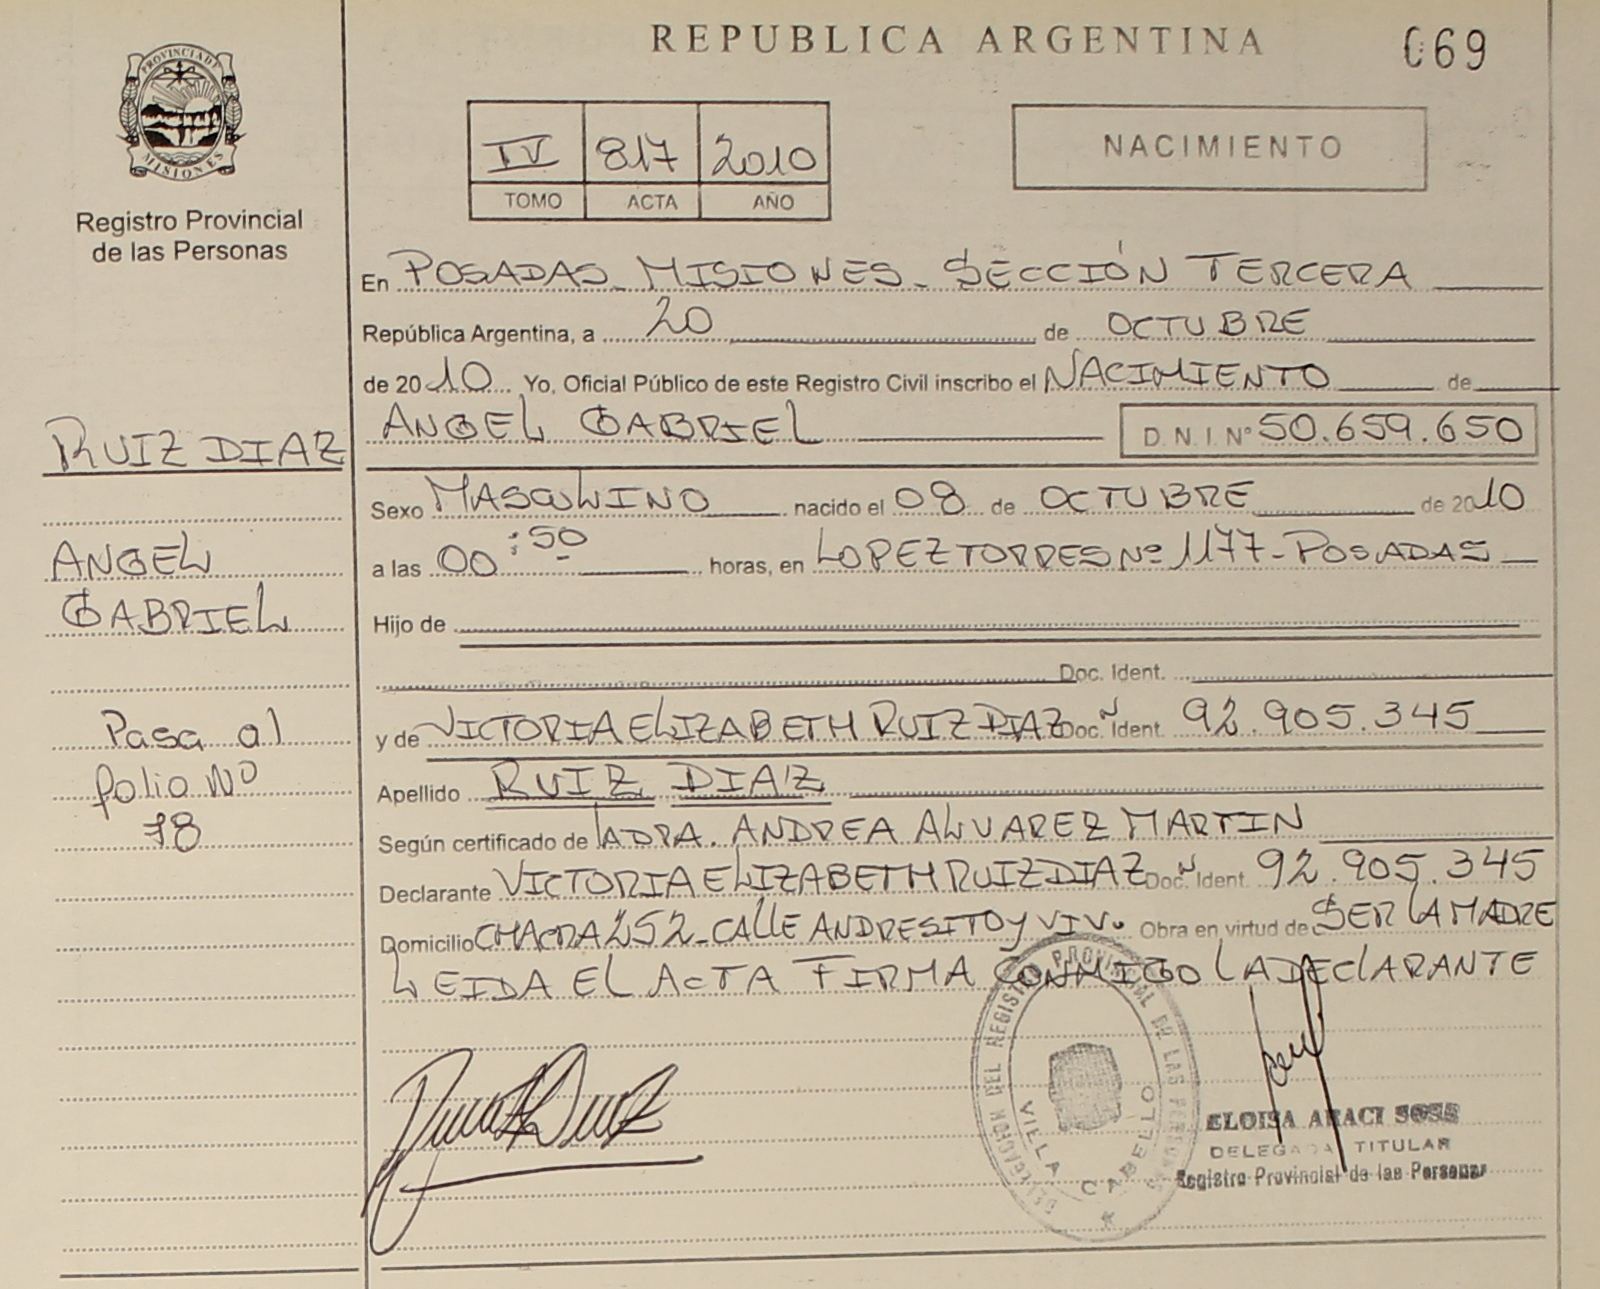 REPUBLICA ARGENTINA
069
PROVINCIA DE
MISIONES
Registro Provincial
de las Personas
IV 817 2010
TOMO ACTA AÑO
NACIMIENTO
En POSADAS_MISIONES_SECCIÓN TERCERA
República Argentina, a 20 de OCTUBRE
de 2010 Yo, Oficial Público de este Registro Civil inscribo el NACIMIENTO de
ANGEL GABRIEL D.N.I. Nº 50.659.650
RUIZ DIAZ
Sexo MASCULINO nacido el 08 de OCTUBRE de 2010
ANGEL
GABRIEL
a las 00:50 horas, en LOPEZ TORRES Nº 1177-POSADAS
Hijo de
Doc. Ident.
Pasa al
folio Nº
78
y de VICTORIA ELIZABETH RUIZ DIAZ Doc. Ident. 92.905.345
Apellido RUIZ DIAZ
Según certificado de LA DRA. ANDREA ALVAREZ MARTIN
Declarante VICTORIA ELIZABETH RUIZ DIAZ Doc. Ident. 92.905.345
Domicilio CHACRA 252_CALLE ANDRESITO y VIV. Obra en virtud de SER LA MADRE
LEIDA EL ACTA FIRMA CONMIGO LA DECLARANTE
DELEGACION DEL REGISTRO PROVINCIAL DE LAS PERSONAS
VIELA CABELLO
ELOISA ARACI SOSS
DELEGADA TITULAR
Registro Provincial de las Personas